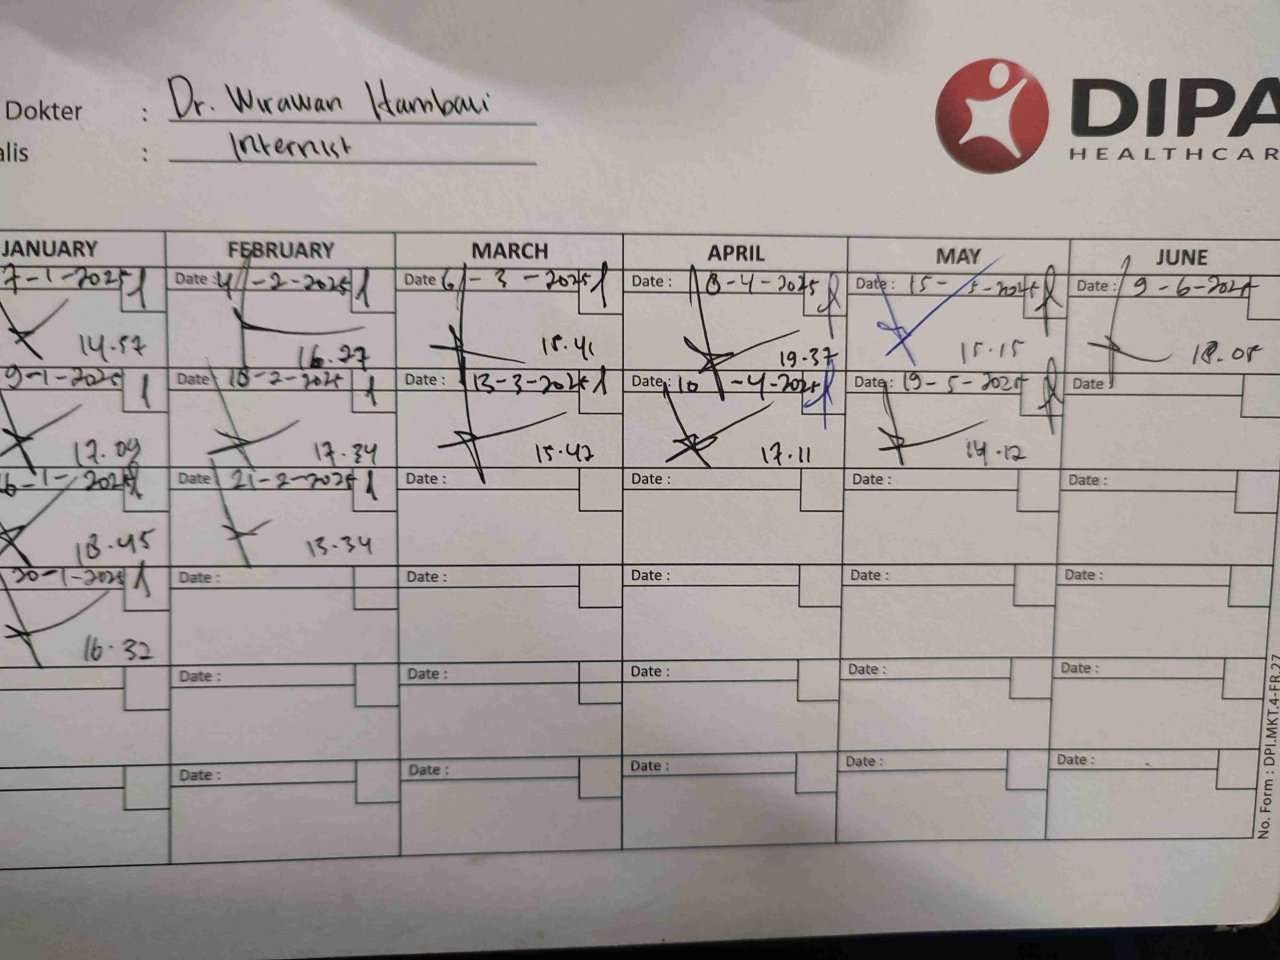 Dokter : Dr. Wirawan Hambali
alis : Internist
DIPA
HEALTHCAR
JANUARY FEBRUARY MARCH APRIL MAY JUNE
7-1-2025 Date : 4-2-2025 Date 6-3-2025 Date : 8-4-2025 Date : 15-5-2025 Date : 9-6-2025
14.57 16.27 15.41 19.37 15.15 18.05
9-1-2025 Date 18-2-2025 Date : 13-3-2025 Date : 10-4-2025 Date : 19-5-2025 Date
17.09 17.34 15.42 17.11 14.12
6-1-2025 Date 21-2-2025 Date : Date : Date : Date :
18.45 13.34
20-1-2025 Date : Date : Date : Date : Date :
16.32
Date : Date : Date : Date : Date :
Date : Date : Date : Date : Date :
No. Form : DPI.MKT.4-FR.27